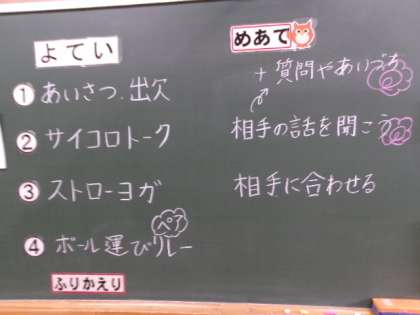 よてい
① あいさつ.出欠
② サイコロトーク
③ ストローヨガ
ペア
④ ボール運びリレー
ふりかえり
めあて
+質問やあいづち
相手の話を聞こう
相手に合わせる